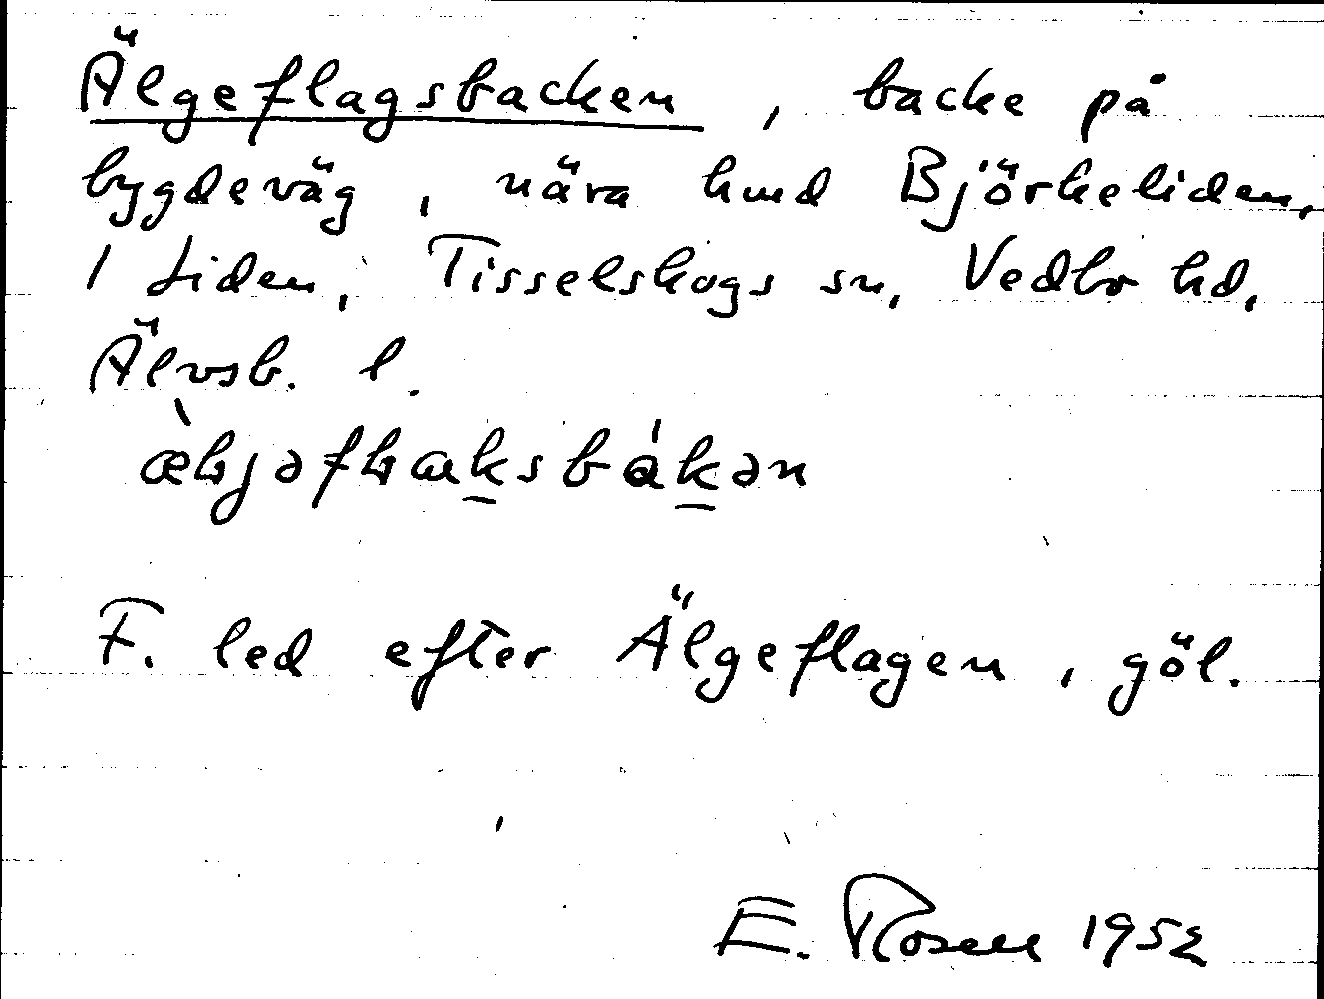 Älgeflagsbacken, backe på
bygdeväg, nära hmd Björkeliden,
1 Liden, Tisselskogs sn, Vedbo hd,
Älvsb. l.
F. led efter Älgeflagen, göl.
E. Rosell 1952